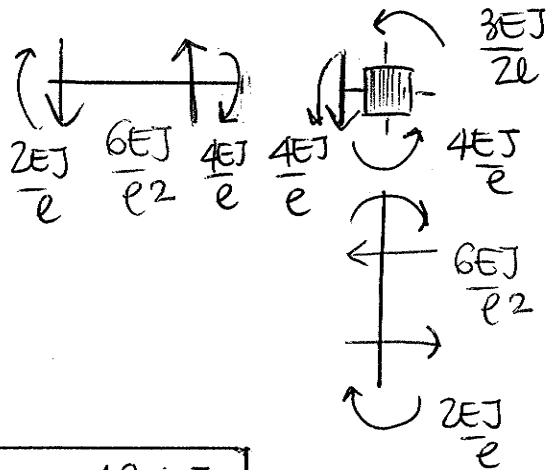 3EJ
2l
2EJ
l
6EJ
l2
4EJ
l
4EJ
l
4EJ
l
6EJ
l2
2EJ
l